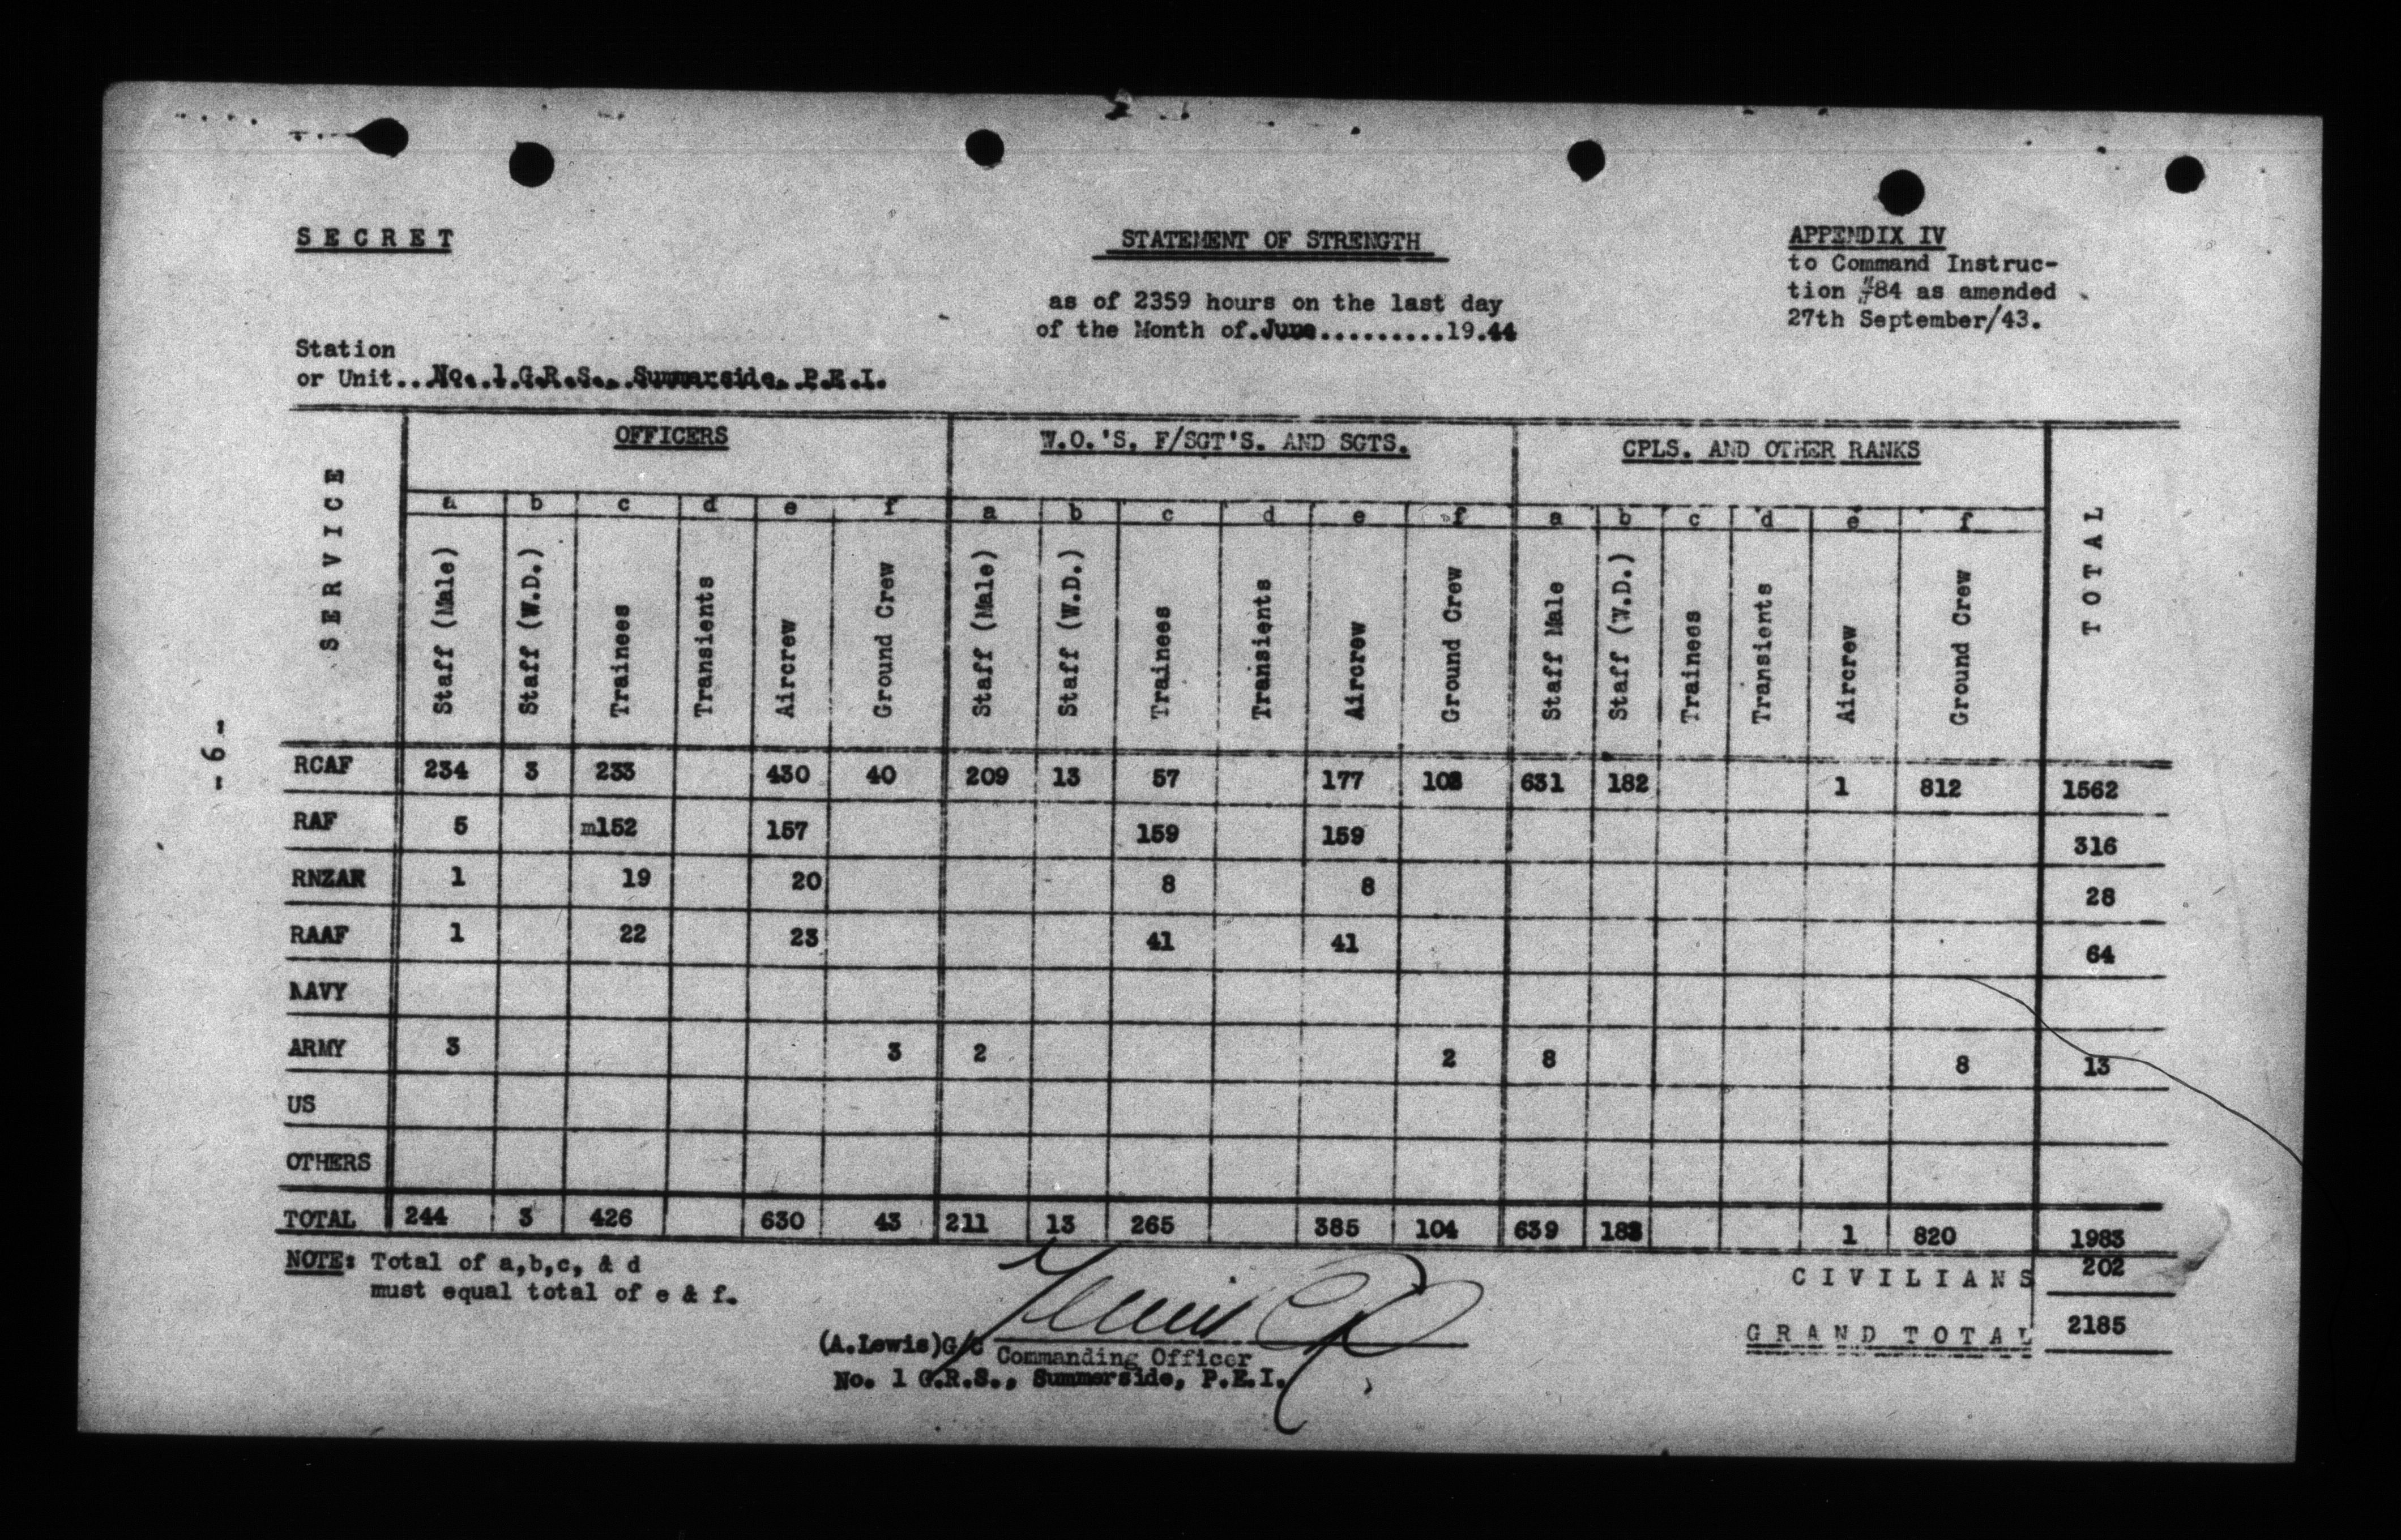 SECRET
STATEMENT OF STRENGTH
APPENDIX IV
to Command Instruc-
tion #84 as amended
27th September/43.
as of 2359 hours on the last day
of the Month of.June..........19.44
Station
or Unit...No. 1 G.R.S., Summerside, P.E.I.
SERVICE OFFICERS W.O.'S. F/SGT'S. AND SGTS. CPLS. AND OTHER RANKS TOTAL
a b c d e f a b c d e f a b c d e f
Staff (Male) Staff (W.D.) Trainees Transients Aircrew Ground Crew Staff (Male) Staff (W.D.) Trainees Transients Aircrew Ground Crew Staff Male Staff (W.D.) Trainees Transients Aircrew Ground Crew
- 6 -
RCAF 234 3 233 430 40 209 13 57 177 102 631 182 1 812 1562
RAF 5 m152 157 159 159 316
RNZAF 1 19 20 8 8 28
RAAF 1 22 23 41 41 64
NAVY
ARMY 3 3 2 2 8 8 13
US
OTHERS
TOTAL 244 3 426 630 43 211 13 265 385 104 639 182 1 820 1983
NOTE: Total of a,b,c, & d
must equal total of e & f.
CIVILIANS 202
GRAND TOTAL 2185
(A.Lewis)G/C Commanding Officer
No. 1 G.R.S., Summerside, P.E.I.